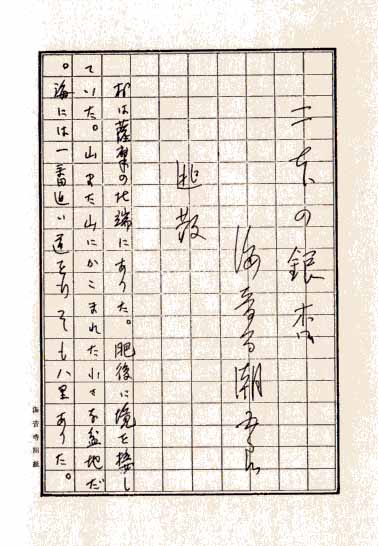 二本の銀杏
海音寺潮五郎
逃散
村は薩摩の北端にあった。肥後に境を接し
ていた。山また山にかこまれた小さな盆地だ
。海には一番近い道をとっても八里あった。
海音寺用紙